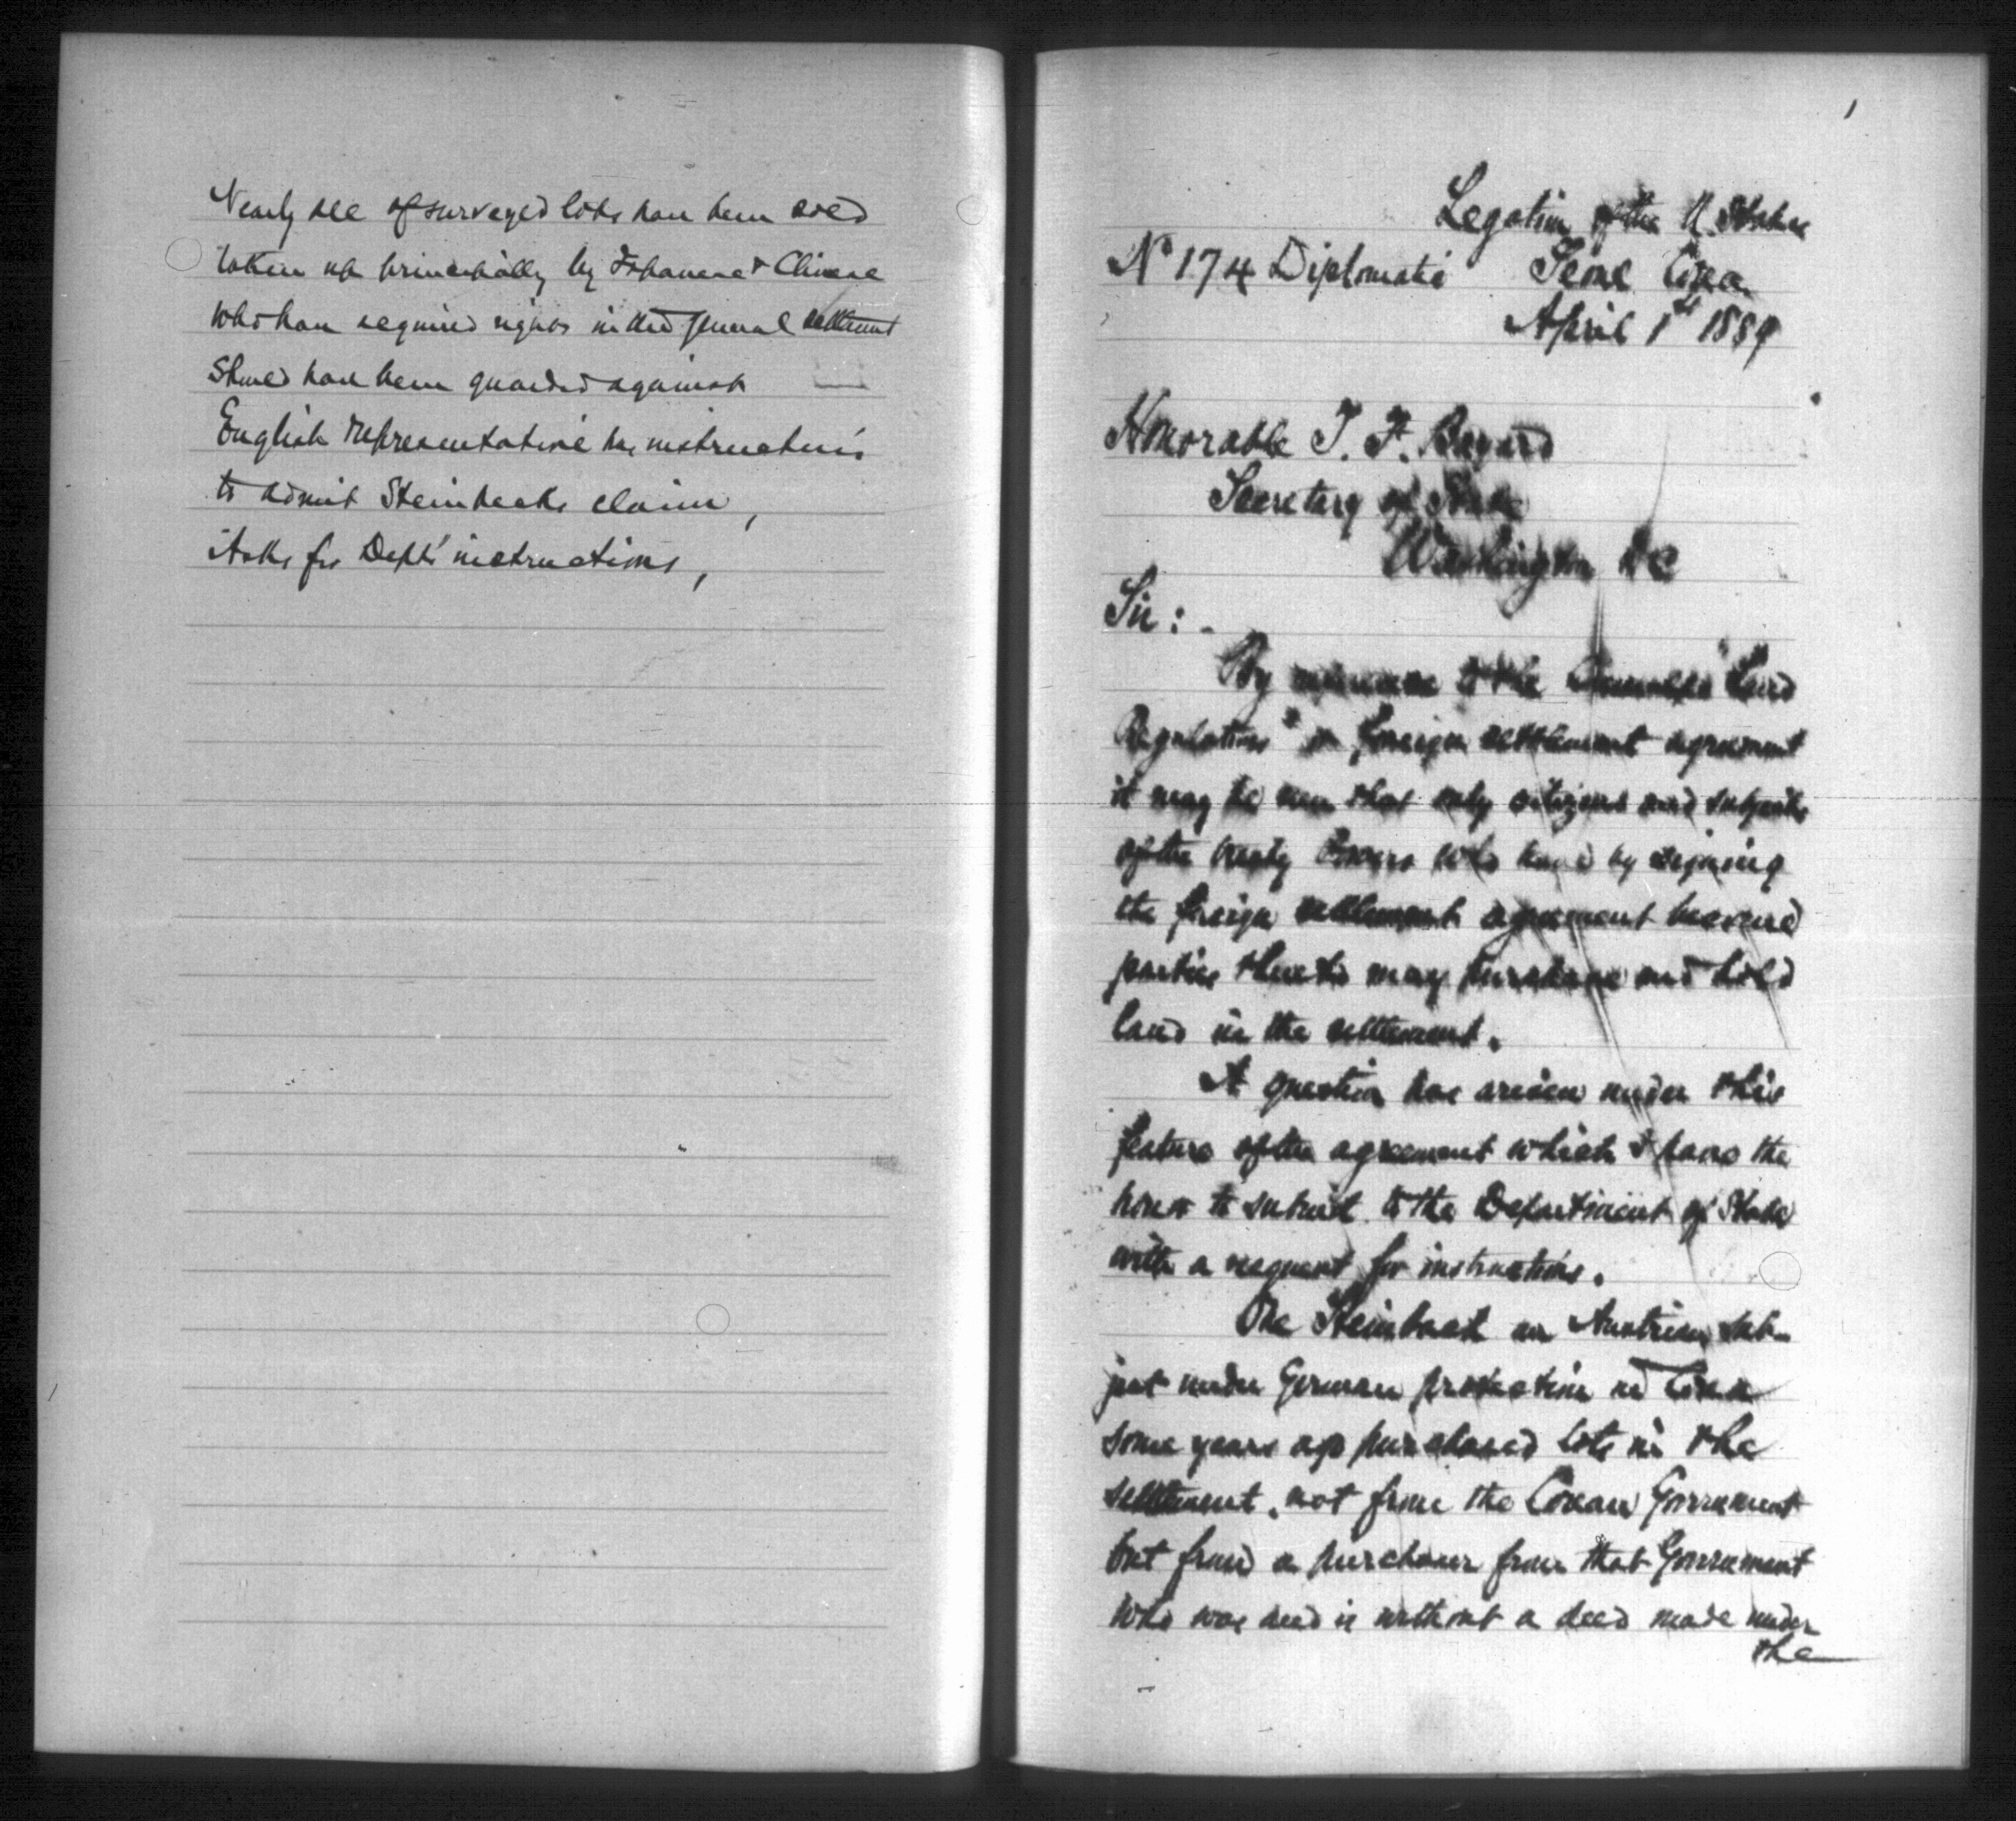 Nearly all of surveyed lots have been sold
taken up principally by Japanese & Chinese
who have acquired rights in the general settlement
should have been guarded against
English representative has instructions
to admit Steinbecks claim,
Asks for Depts' instructions,
1
Legation of the U. States
Nº 174 Diplomatic Seoul Corea
April 1st 1889
Honorable T. F. Bayard
Secretary of State
Washington D C
Sir : -
By reference to the Chemulpo "Land
Regulations" or foreign settlement agreement
it may be seen that only citizens and subjects
of the treaty Powers who have by signing
the foreign settlement agreement become
parties thereto may purchase and hold
land in the settlement.
A question has arisen under this
feature of the agreement which I have the
honor to submit to the Department of State
with a request for instructions.
One Steinbeck an Austrian sub-
ject under German protection in Corea
some years ago purchased lots in the
settlement, not from the Corean Government
but from a purchaser from that Government
who was and is without a deed made under
the